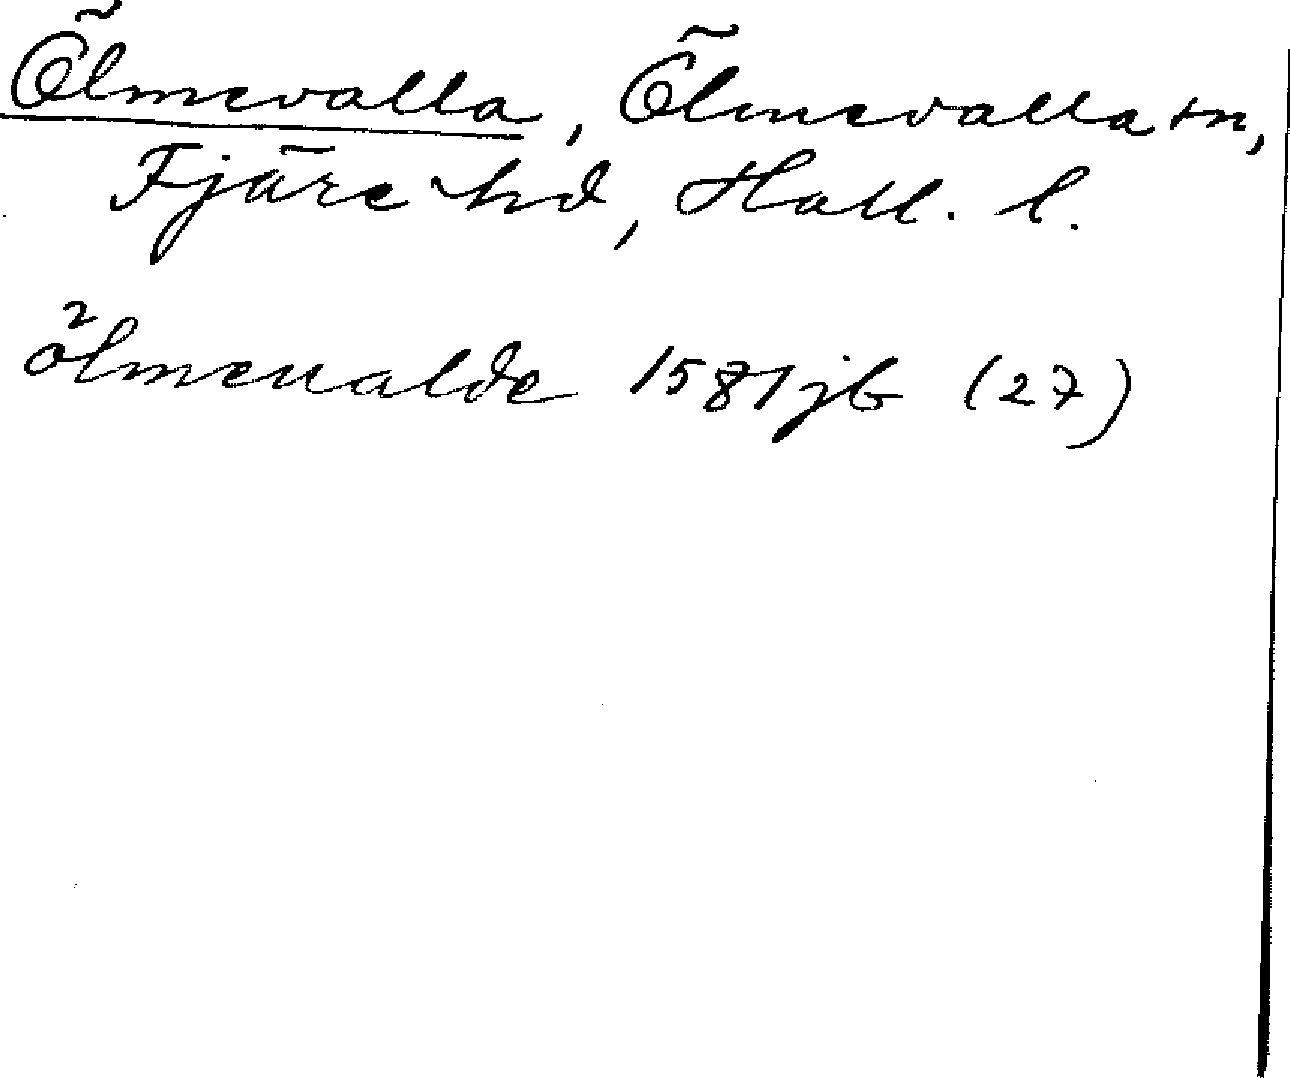 Ölmevalla, Ölmevalla sn,
Fjäre hd, Hall. l.
ölmeualde 1581 jb (27)